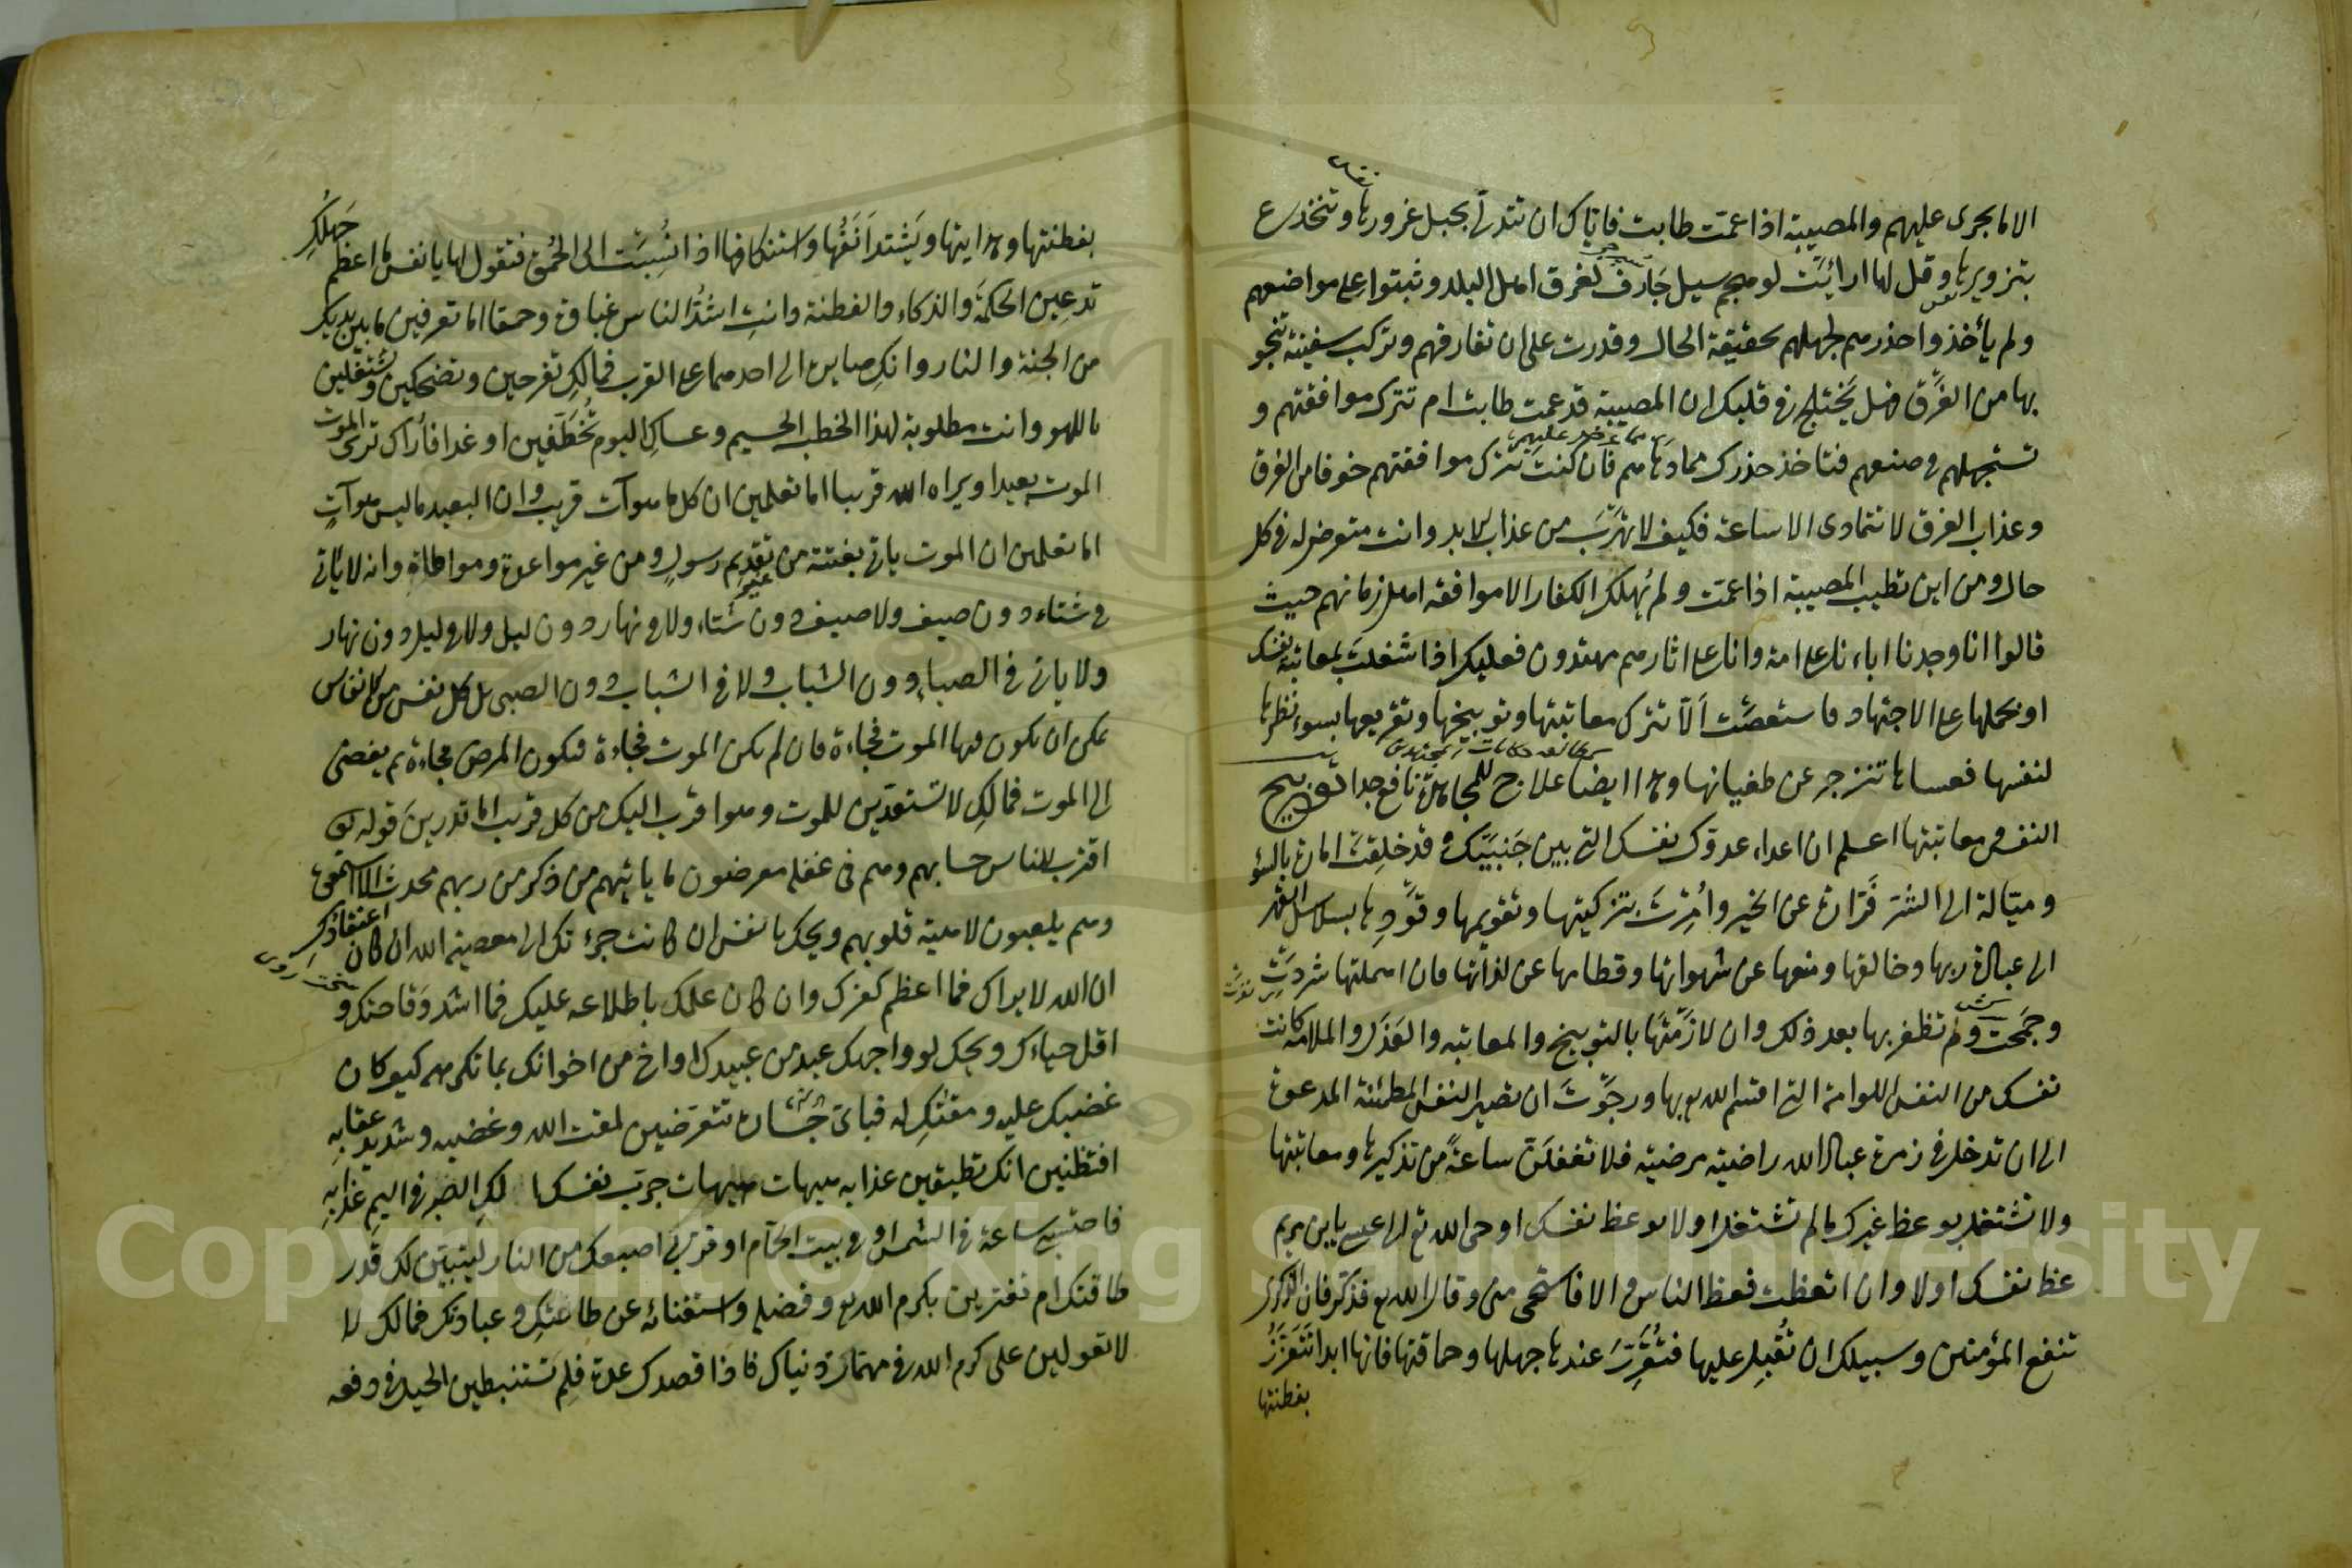 الا ما يجرى عليهم والمصيبة اذا عمت طابت فاياك ان تتدلى بحبل غرورها وتنخدع
بتزويرها وقل لها ارائيت لو هجم سيل جارف لغرق اهل البلد وثبتوا على مواضعهم
ولم يأخذوا حذرهم لجهلهم بحقيقة الحال وقدرت على ان تفارقهم وتركب سفينة تنجو
بها من الغرق فهل يختلج فى قلبك ان المصيبة قد عمت طابت ام تترك موافقتهم و
تستجهلهم فى صنعهم فتاخذ حذرك مما دهاهم فان كنت تترك موافقتهم خوفا من الغرق
وعذاب الغرق لا تتمادى الا ساعة فكيف لا تهرب من عذاب الابد وانت متعرض له فى كل
حال ومن اين تطيب المصيبة اذا عمت ولم يهلك الكفار الا موافقه اهل زمانهم حيث
قالوا انا وجدنا اباءنا على امة وانا على اثارهم مهتدون فعليك اذا شغلت بمعاتبة نفسك
او بحملها على الاجتهاد فاستعصت الا تترك معاتبتها وتوبيخها وتقريعها بسوء نظرها
لنفسها فعساها تنزجر عن طغيانها وهذا ايضا علاج للمجاهدة نافع جدا توبيخ
النفس ومعاتبتها اعلم ان اعداء عدوك نفسك التى بين جنبيك وقد خلقت امارة بالسؤ
وميالة الى الشر فرارة عن الخير وامرت بتزكيتها وتقويمها وقودها بسلاسل القهر
الى عبادة ربها وخالقها ومنعها عن شهواتها وفطامها عن لذاتها فان اهملتها شردت
وجمحت ولم تظفر بها بعد ذلك وان لازمتها بالتوبيخ والمعاتبه والعذل والملامه كانت
نفسك من النفس اللوامة التى اقسم الله بها ورجوت ان تصير النفس المطمئنة المدعوة
الى ان تدخل فى زمرة عباد الله راضية مرضية فلا تغفلن ساعة من تذكيرها ومعاتبتها
ولا تشتغل بوعظ غيرك ما لم تشتغل اولا بوعظ نفسك اوحى الله تع الى عيسى يا ابن مريم
عظ نفسك اولا وان اتعظت فعظ الناس والا فاستحى منى وقال الله تع فذكر فان الذكرى
تنفع المؤمنين وسبيلك ان تقبل عليها فتقرر عندها جهلها وحماقتها فانها ابدا تتعزز
بفطنتها
بفطنتها وهدايتها ويشتد انفها واستنكافها اذا نسبت الى الحمق فتقول لها يا نفس ما اعظم جهلك
تدعين الحكمة والذكاء والفطنة وانت اشد الناس غباوة وحمقا اما تعرفين ما بين يديك
من الجنة والنار وانك صايرة الى احدهما على القرب فمالك تفرحين وتضحكين وتشتغلين
باللهو وانت مطلوبة لهذا الخطب الجسيم وعساك اليوم تختطفين او غدا فأراك ترى الموت
الموت بعيدا ويراه الله قريبا اما تعلمين ان كل ما هو آت قريب وان البعيد ما ليس هو آت
اما تعلمين ان الموت ياتى بغتة من غير تقديم رسول ومن غير مواعدة ومواطاة وانه لا ياتى
فى شتاء دون صيف ولا صيف دون شتاء ولا فى نهار دون ليل ولا فى ليل دون نهار
ولا ياتى فى الصباء دون الشباب ولا فى الشباب دون الصبى بل كل نفس من الانفاس
يمكن ان يكون فيها الموت فجاءة فان لم يكن الموت فجاءة فيكون المرض فجاءة ثم يفضى
الى الموت فمالك لا تستعدين للموت وهو اقرب اليك من كل قريب اما تدرين قوله تع
اقترب للناس حسابهم وهم فى غفلة معرضون ما ياتيهم من ذكر من ربهم محدث الا استمعوه
وهم يلعبون لاهية قلوبهم ويحك يا نفس ان كانت جرءتك الى معصية الله ان كان اعتقادك
ان الله لا يراك فما اعظم كفرك وان كان علمك باطلاعه عليك فما اشد وقاحتك و
اقل حياءك ويحك لو واجهك عبد من عبيدك او اخ من اخوانك بما تكرهه كيف كان
غضبك عليه ومقتك له فباى جسارة تتعرضين لمقت الله وغضبه وشديد عقابه
افتظنين انك تطيقين عذابه هيهات هيهات جرب نفسك لك الصبر فى اليم عذابه
فاحتبسى ساعة فى الشمس او فى بيت الحمام او قربى اصبعك من النار ليتبين لك قدر
طاقتك ام تغترين بكرم الله تع وفضله واستغنائه عن طاعتك وعبادتك فمالك لا
لا تعولين على كرم الله فى مهمات دنياك فاذا قصدك عدو فلم تستنبطين الحيل فى دفعه
Copyright © King Saud University